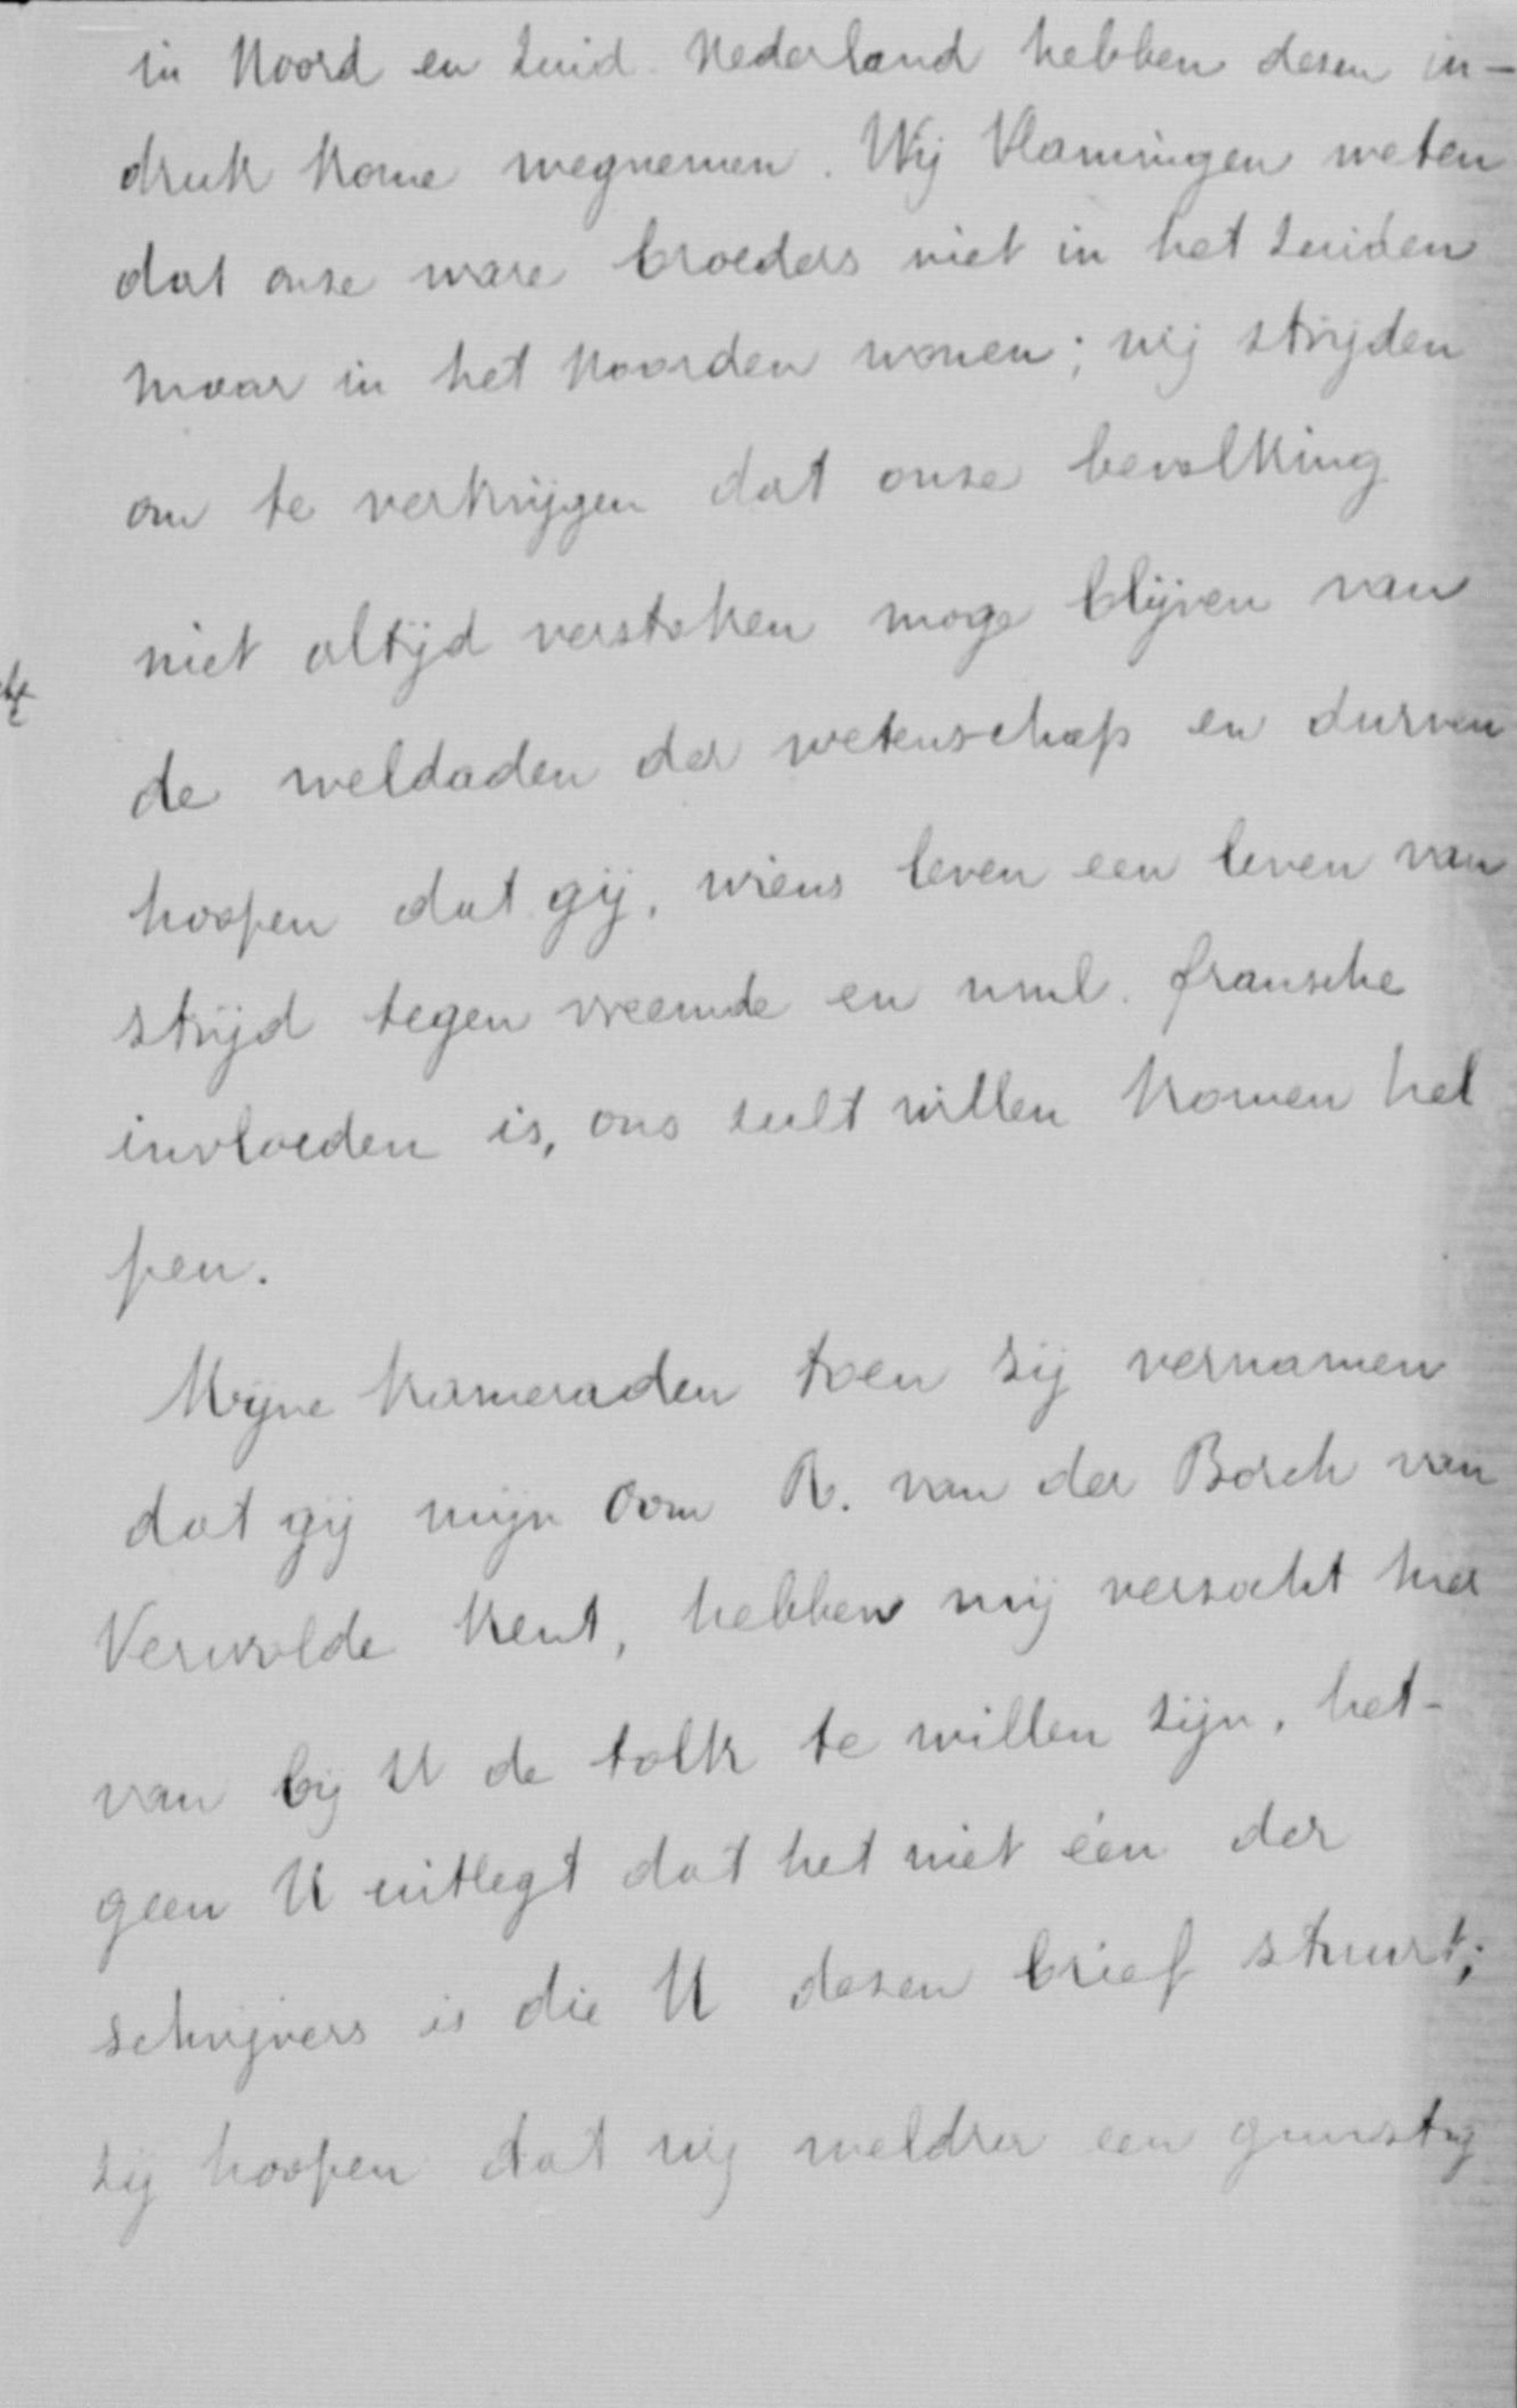 in Noord en Zuid. Nederland hebben dezen in-
druk kome wegnemen. Wij Vlamingen weten
dat onze ware broeders niet in het Zuiden
maar in het Noorden wonen; wij strijden
om te verkrijgen dat onze bevolking
niet altijd versteken moge blijven van
de weldaden der wetenschap en durven
hoopen dat gij, wiens leven een leven van
strijd tegen vreemde en nml. fransche
invloeden is, ons zult willen komen hel
pen.
Mijne kameraden toen zij vernamen
dat gij mijn Oom R. van der Borch van
Verwolde kent, hebben mij verzocht hier
van bij U de tolk te willen zijn, het-
geen U uitlegt dat het niet één der
schrijvers is die U dezen brief stuurt;
zij hoopen dat wij weldra een gunstig